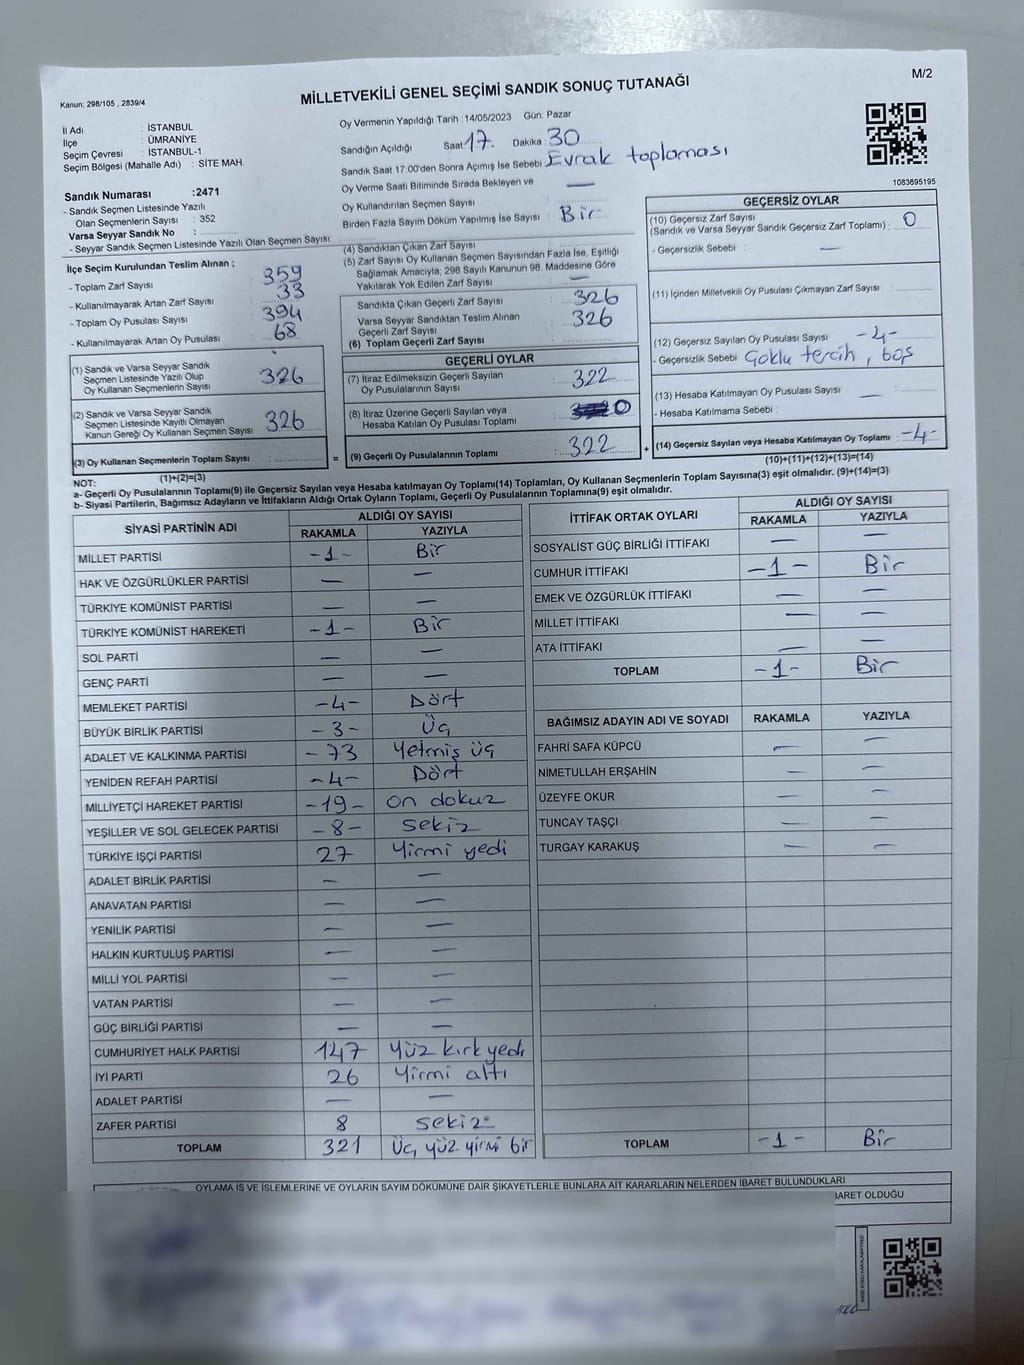 M/2
Kanun; 298/105 , 2839/4
MİLLETVEKİLİ GENEL SEÇİMİ SANDIK SONUÇ TUTANAĞI
İl Adı : İSTANBUL
İlçe : ÜMRANİYE
Seçim Çevresi : İSTANBUL-1
Seçim Bölgesi (Mahalle Adı) : SİTE MAH.
Oy Vermenin Yapıldığı Tarih :14/05/2023 Gün: Pazar
Sandığın Açıldığı Saat 17. Dakika : 30
Sandık Saat 17.00'den Sonra Açımış İse Sebebi : Evrak toplaması
Oy Verme Saati Bitiminde Sırada Bekleyen ve
Oy Kullandırılan Seçmen Sayısı : —
Birden Fazla Sayım Döküm Yapılmış İse Sayısı : Bir
1083695195
Sandık Numarası :2471
- Sandık Seçmen Listesinde Yazılı
Olan Seçmenlerin Sayısı : 352
Varsa Seyyar Sandık No :
- Seyyar Sandık Seçmen Listesinde Yazılı Olan Seçmen Sayısı:
İlçe Seçim Kurulundan Teslim Alınan ;
- Toplam Zarf Sayısı : 359
- Kullanılmayarak Artan Zarf Sayısı : 33
- Toplam Oy Pusulası Sayısı : 394
- Kullanılmayarak Artan Oy Pusulası : 68
(1) Sandık ve Varsa Seyyar Sandık
Seçmen Listesinde Yazılı Olup
Oy Kullanan Seçmenlerin Sayısı : 326
(2) Sandık ve Varsa Seyyar Sandık
Seçmen Listesinde Kayıtlı Olmayan
Kanun Gereği Oy Kullanan Seçmen Sayısı : 326
(3) Oy Kullanan Seçmenlerin Toplam Sayısı :
(1)+(2)=(3)
(4) Sandıktan Çıkan Zarf Sayısı
(5) Zarf Sayısı Oy Kullanan Seçmen Sayısından Fazla İse, Eşitliği
Sağlamak Amacıyla; 298 Sayılı Kanunun 98. Maddesine Göre
Yakılarak Yok Edilen Zarf Sayısı : —
Sandıkta Çıkan Geçerli Zarf Sayısı : 326
Varsa Seyyar Sandıktan Teslim Alınan
Geçerli Zarf Sayısı : 326
(6) Toplam Geçerli Zarf Sayısı :
GEÇERLİ OYLAR
(7) İtiraz Edilmeksizin Geçerli Sayılan
Oy Pusulalarının Sayısı : 322
(8) İtiraz Üzerine Geçerli Sayılan veya
Hesaba Katılan Oy Pusulası Toplamı : 0
= (9) Geçerli Oy Pusulalarının Toplamı : 322 +
GEÇERSİZ OYLAR
(10) Geçersiz Zarf Sayısı
(Sandık ve Varsa Seyyar Sandık Geçersiz Zarf Toplamı) : 0
- Geçersizlik Sebebi : —
(11) İçinden Milletvekili Oy Pusulası Çıkmayan Zarf Sayısı :
(12) Geçersiz Sayılan Oy Pusulası Sayısı : -4-
- Geçersizlik Sebebi : Çoklu tercih , boş
(13) Hesaba Katılmayan Oy Pusulası Sayısı : —
- Hesaba Katılmama Sebebi :
(14) Geçersiz Sayılan veya Hesaba Katılmayan Oy Toplamı : -4-
(10)+(11)+(12)+(13)=(14)
NOT:
a- Geçerli Oy Pusulalarının Toplamı(9) ile Geçersiz Sayılan veya Hesaba katılmayan Oy Toplamı(14) Toplamları, Oy Kullanan Seçmenlerin Toplam Sayısına(3) eşit olmalıdır. (9)+(14)=(3)
b- Siyasi Partilerin, Bağımsız Adayların ve İttifakların Aldığı Ortak Oyların Toplamı, Geçerli Oy Pusulalarının Toplamına(9) eşit olmalıdır.
SİYASİ PARTİNİN ADI ALDIĞI OY SAYISI
RAKAMLA YAZIYLA
MİLLET PARTİSİ -1- Bir
HAK VE ÖZGÜRLÜKLER PARTİSİ — —
TÜRKİYE KOMÜNİST PARTİSİ — —
TÜRKİYE KOMÜNİST HAREKETİ -1- Bir
SOL PARTİ — —
GENÇ PARTİ — —
MEMLEKET PARTİSİ -4- Dört
BÜYÜK BİRLİK PARTİSİ -3- Üç
ADALET VE KALKINMA PARTİSİ -73 Yetmiş üç
YENİDEN REFAH PARTİSİ -4- Dört
MİLLİYETÇİ HAREKET PARTİSİ -19- on dokuz
YEŞİLLER VE SOL GELECEK PARTİSİ -8- sekiz
TÜRKİYE İŞÇİ PARTİSİ 27 Yirmi yedi
ADALET BİRLİK PARTİSİ — —
ANAVATAN PARTİSİ — —
YENİLİK PARTİSİ — —
HALKIN KURTULUŞ PARTİSİ — —
MİLLİ YOL PARTİSİ — —
VATAN PARTİSİ — —
GÜÇ BİRLİĞİ PARTİSİ — —
CUMHURİYET HALK PARTİSİ 147 Yüz kırk yedi
İYİ PARTİ 26 Yirmi altı
ADALET PARTİSİ — —
ZAFER PARTİSİ 8 sekiz
TOPLAM 321 Üç yüz yirmi bir
İTTİFAK ORTAK OYLARI ALDIĞI OY SAYISI
RAKAMLA YAZIYLA
SOSYALİST GÜÇ BİRLİĞİ İTTİFAKI — —
CUMHUR İTTİFAKI -1- Bir
EMEK VE ÖZGÜRLÜK İTTİFAKI — —
MİLLET İTTİFAKI — —
ATA İTTİFAKI — —
TOPLAM -1- Bir
BAĞIMSIZ ADAYIN ADI VE SOYADI RAKAMLA YAZIYLA
FAHRİ SAFA KÜPCÜ — —
NİMETULLAH ERŞAHİN — —
ÜZEYFE OKUR — —
TUNCAY TAŞÇI — —
TURGAY KARAKUŞ — —
TOPLAM -1- Bir
OYLAMA İŞ VE İŞLEMLERİNE VE OYLARIN SAYIM DÖKÜMÜNE DAİR ŞİKAYETLERLE BUNLARA AİT KARARLARIN NELERDEN İBARET BULUNDUKLARI
İBARET OLDUĞU